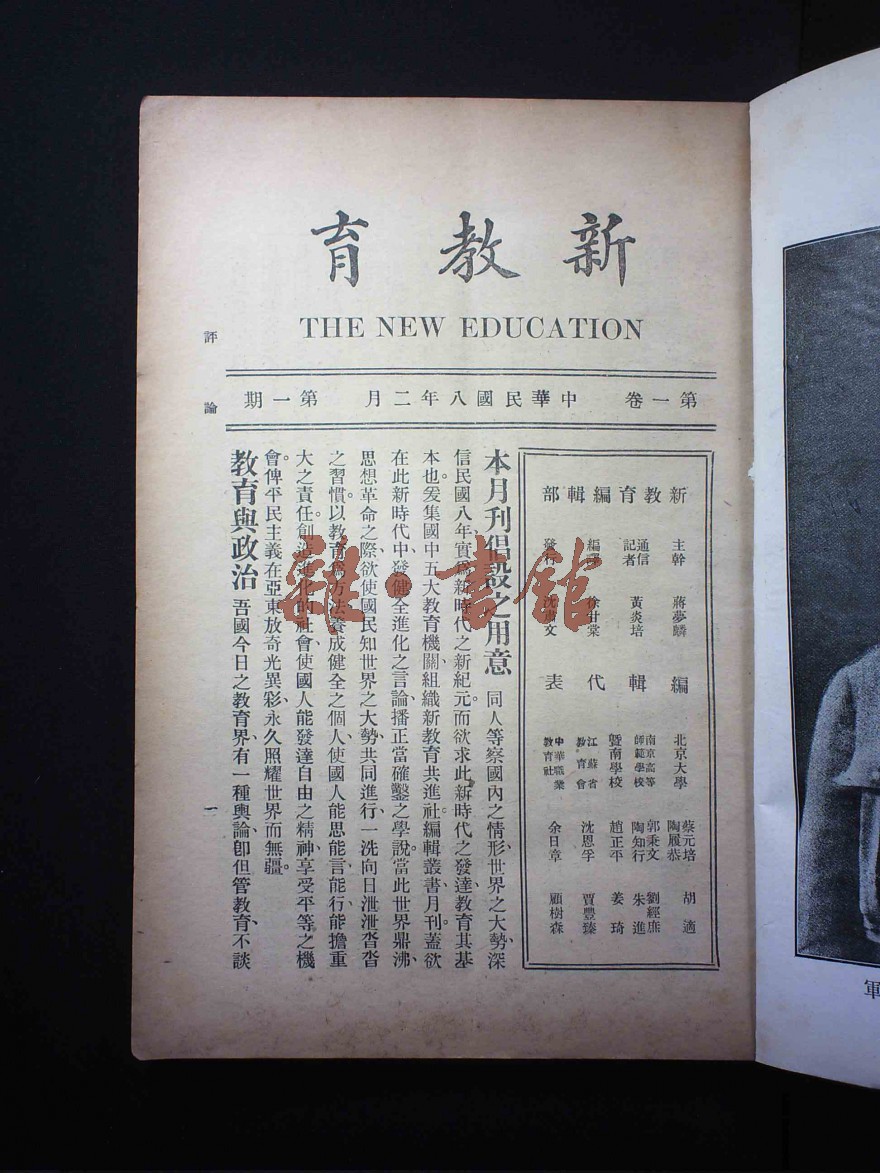 新教育
THE NEW EDUCATION
第一卷 中華民國八年二月 第一期
新教育編輯部
主幹 蔣夢麟
通信記者 黃炎培
編譯 徐甘棠
發行 沈
文
編輯代表
北京大學 蔡元培 陶履恭 胡適
南京高等師範學校 郭秉文 陶知行 劉經庶 朱進
暨南學校 趙正平 姜琦
江蘇省教育會 沈恩孚 賈豐臻
中華職業教育社 余日章 顧樹森
本月刊倡設之用意 同人等察國內之情形、世界之大勢、深
信民國八年、實爲新時代之新紀元。而欲求此新時代之發達、教育其基
本也。爰集國中五大教育機關、組織新教育共進社、編輯叢書月刊。蓋欲
在此新時代中、發健全進化之言論、播正當確鑿之學說。當此世界鼎沸、
思想革命之際、欲使國民知世界之大勢、共同進行、一洗向日泄泄沓沓
之習慣。以教育爲方法、養成健全之個人、使國人能思能言能行、能擔重
大之責任。創造進化的社會、使國人能發達自由之精神、享受平等之機
會。俾平民主義在亞東放奇光異彩、永久照耀世界而無疆。
教育與政治 吾國今日之教育界、有一種輿論、卽但管教育、不談
評論
一
雜·書館
軍